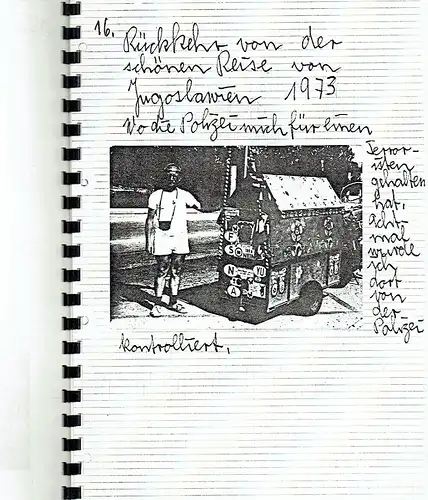 16.
Rückkehr von der
schönen Reise von
Jugoslawien 1973
Wo die Polizei mich für einen
Terror-
isten
gehalten
hat.
Acht-
mal
wurde
ich
dort
von
der
Polizei
kontrolliert.
F
S
N
YU
A